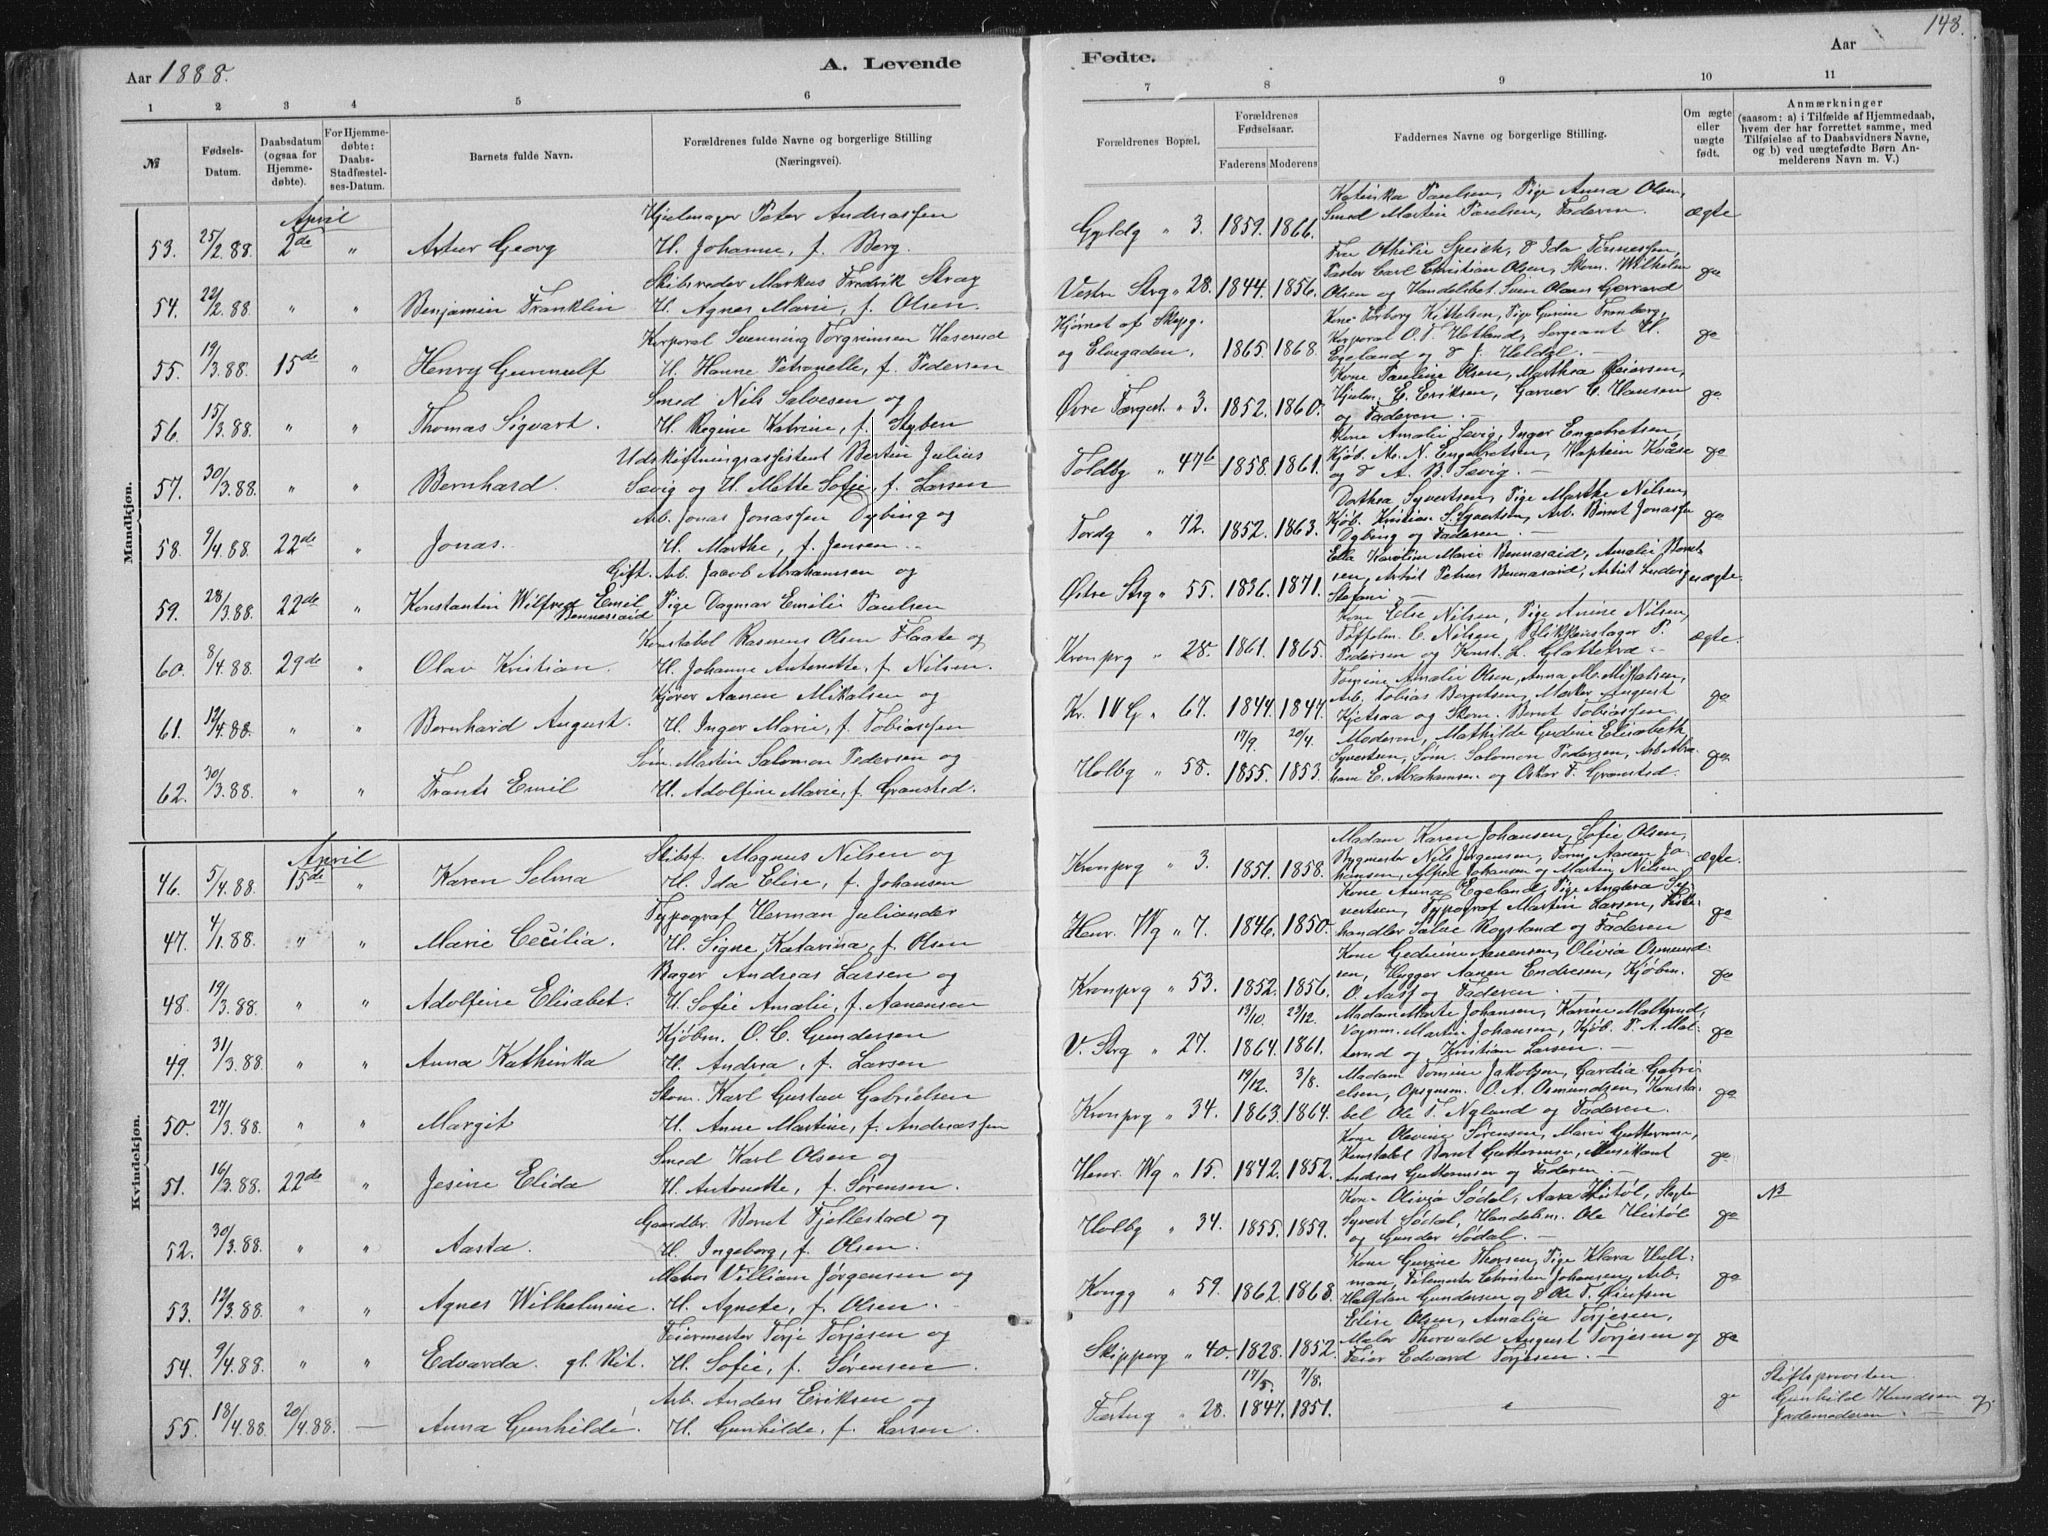 148.
Aar 1888.
A. Levende
Fødte.
Aar
1 2 3 4 5 6 7 8 9 10 11
№
Fødsels-Datum.
Daabsdatum (ogsaa for Hjemmedøbte).
For Hjemmedøbte: Daabs-Stadfæstelses-Datum.
Barnets fulde Navn.
Forældrenes fulde Navne og borgerlige Stilling (Næringsvei).
Forældrenes Bopæl.
Forældrenes Fødselsaar.
Faderens Moderens
Faddernes Navne og borgerlige Stilling.
Om ægte eller uægte født.
Anmærkninger (saasom: a) i Tilfælde af Hjemmedaab, hvem der har forrettet samme, med Tilføielse af to Daabsvidners Navne, og b) ved uægtefødte Børn Anmelderens Navn m. V.)
Mandkjøn.
April
53. 25/2 88. 2de " Artur Georg
Hjulmager Peter Andreassen
H. Johanne, f. Berg.
Gyldg " 3. 1859. 1866.
Katinka Paulsen, Pige Anna Olsen,
Smed Martin Paulsen, Faderen.
ægte
54. 22/2 88. " " Benjamin Franklin
Skibsreder Markus Fredrik Stray
H. Agnes Marie, f. Olsen.
Vestre Strg " 28. 1844. 1856.
Fru Othilie Speich, & Ida Tønnessen,
Pastor Carl Christian Olsen, Skom. Wilhelm
Olsen og Handelsbet. Sven Olaus Gerrard
do
55. 19/3 88. 15de Henry Gunnulf
Korporal Svenning Torgrimsen Haserud
H. Hanne Petronelle, f. Pedersen
Hjørnet af Skippg.
og Elvegaden. 1865. 1868.
Kone Torborg Kittelsen, Pige Gurine Tranberg,
Korporal O. T. Hotland, Sergeant H.
Egeland og & J. Heldal. —
do
56. 15/3 88. " " Thomas Sigvart.
Smed Nils Salvesen og
H. Regine Katrine, f. Styben
Øvre Færgest. " 3. 1852. 1860.
Kone Pauline Olsen, Marthea Reiersen,
Hjulm. E. Eriksen, Garver C. Hansen
og Faderen. —
do
57. 30/3 88. " " Bernhard.
Udskiftningsassistent Bertin Julius
Sævig og H. Mette Sofie, f. Larsen
Toldbg " 47b 1858. 1861.
Kone Amalie Sevig, Inger Engebretsen,
Kjøb. M. N. Engebretsen, Kaptein Kvåse
og & A. B. Sævig. —
do
58. 9/4 88. 22de " Jonas.
Arb. Jonas Jonassen Dybing og
H. Marthe, f. Jensen.
Tordg " 72. 1852. 1863.
Dorthea Syvertsen, Pige Marthe Nilsen,
Kjøb. Kristian S. Syvertsen, Arb. Bernt Jonassen
Dybing og Faderen. —
do
59. 28/3 88. 22de " Konstantin Wilfred Emil
Bennesaid
Gift. Arb. Jacob Abrahamsen og
Pige Dagmar Emilie Paulsen
Østre Strg " 55. 1836. 1871.
Ella Karoline Marie Bennesaid, Amalie Berntsen,
Artist Petrus Bennesaid, Artist Ludvig
Stefani —
uægte.
60. 8/4 88. 29de " Olav Kristian.
Konstabel Rasmus Olsen Flaate og
H. Johanne Antonette, f. Nilsen.
Kronprg " 28. 1861. 1865.
Kone Else Nilsen, Pige Anine Nilsen,
Toffelm. C. Nilsen, Blikkenslager P.
Pedersen og Konst. L. Glattetræ. —
ægte.
61. 12/4 88. " " Bernhard August.
Kjører Aanen Mikalsen og
H. Inger Marie, f. Tobiassen
Kr. IV G " 67. 1844. 1847.
Tomine Amalie Olsen, Anna M. Mikalsen,
Arb. Tobias Berntsen, Matros August
Kjetsaa og Skom. Bernt Tobiassen.
do
62. 30/3 88. " " Frants Emil
Søm. Martin Salomon Pedersen og
H. Adolfine Marie, f. Gransted.
Holbg " 58. 17/9. 1855. 20/4. 1853.
Moderen, Mathilde Gudine Elisabeth
Syvertsen, Søm. Salomon Pedersen, Arb. Abraham
E. Abrahamsen og Oskar F. Gransted.
do
Kvindekjøn.
April
46. 5/4 88. 15de " Karen Selma
Skibsf. Magnus Nilsen og
H. Ida Elise, f. Johansen
Kronprg " 3. 1851. 1858.
Madam Karen Johansen, Sofie Olsen,
Bygmester Nils Jørgensen, Tøm. Aanen Johansen,
Alfred Johansen og Martin Nilsen
ægte.
47. 4/1 88. " " Marie Cecilia.
Typograf Herman Juliander
H. Signe Katarina, f. Olsen
Henr. Wg " 7. 1846. 1850.
Kone Anna Egeland, Pige Andrea Syvertsen,
Typograf Martin Larsen, Fiskehandler
Salve Rogstand og Faderen
do
48. 19/3 88. " " Adolfine Elisabet.
Bager Andreas Larsen og
H. Sofie Amalie, f. Aanensen
Kronprg " 53. 1852. 1856.
Kone Gedrine Aanensen, Olivia Osmundsen,
Hugger Aanen Endresen, Kjøbm.
O. Aas og Faderen. —
do
49. 31/3 88. " " Anna Kathinka
Kjøbm. O. C. Gundersen
H. Andrea, f. Larsen
V. Strg " 27. 13/10. 1864. 23/12. 1861.
Madam Marte Johansen, Karine Malterud,
Vognm. Martin Johansen, Kjøb. P. A. Malterud
og Kristian Larsen. —
do
50. 27/3 88. " " Margit
Skom. Karl Gustav Gabrielsen
H. Anne Martine, f. Andreassen
Kronprg " 34. 19/12. 1863. 3/8. 1864.
Madam Tomine Jakobsen, Gardia Gabrielsen,
Opsynsm. O. A. Osmundsen, Konstabel
Ole T. Nyland og Faderen.
do
51. 16/3 88. 22de " Jesine Elida
Smed Karl Olsen og
H. Antonette, f. Sørensen.
Henr. Wg " 15. 1842. 1852.
Kone Olevine Sørensen, Marie Guttormsen,
Konstabel Bernt Guttormsen, Musikant
Andreas Guttormsen og Faderen. —
do
52. 30/3 88. " " Aasta.
Gaardbr. Bernt Fjellestad og
H. Ingeborg, f. Olsen.
Holbg " 34. 1855. 1859.
Kone Olivia Sødal, Aasa Histøl, Slagter
Syvert Sødal, Handelsm. Ole Histøl
og Gunder Sødal. —
do
NB
53. 12/3 88. " " Agnes Wilhelmine.
Matros Villiam Jørgensen og
H. Agnete, f. Olsen.
Kongg " 59. 1862. 1868.
Kone Gurine Thorsen, Pige Klara Hultman,
Feiemester Christen Johansen, Arb.
Halfdan Gundersen og & Ole T. Oiufsen
do
54. 9/4 88. " " Edvarda. gl. Rit.
Feiermester Torje Torjesen og
H. Sofie, f. Sørensen.
Skipperg " 40. 1828. 1852.
Elise Olsen, Amalia Torjesen,
Maler Thorvald August Torjesen og
Feier Edvard Torjesen. —
do
55. 18/4 88. 20/4 88. — Anna Gunhilde.
Arb. Anders Eriksen og
H. Gunhilde, f. Larsen
Festng " 28. 17/5. 1847. 7/8. 1851.
do
Stiftsprovsten
Gunhild Knudsen og
Jordemoderen. —